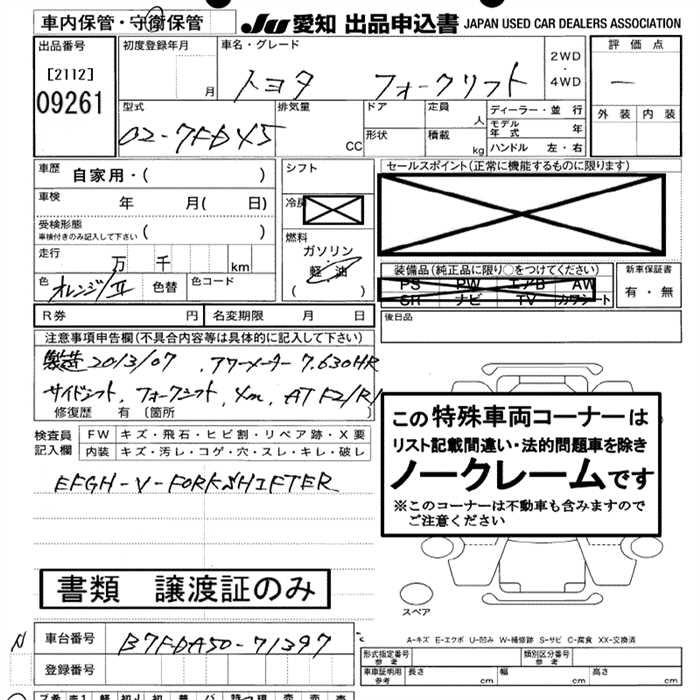 車内保管・守衛保管 JU 愛知 出品申込書 JAPAN USED CAR DEALERS ASSOCIATION
出品番号 初度登録年月 車名・グレード 2WD 評価点
[2112] 月 トヨタ フォークリフト ・ 4WD ー
09261 外装 内装
型式 排気量 ドア 定員 ディーラー・並行
02-7FD45 CC 形状 人 モデル年式 年
積載 kg ハンドル 左・右
車歴 自家用・( ) シフト セールスポイント(正常に機能するものに限ります)
車検 年 月( 日) 冷房
受検形態 ( )
車検付きのみ記入して下さい
燃料
走行 万 千 km ガソリン 装備品(純正品に限り○をつけてください) 新車保証書
軽・油 PS PW エアB AW 有・無
色 オレンジ/II 色替 色コード ( ) SR ナビ TV カワシート
R券 円 名変期限 月 日 後日品
注意事項申告欄(不具合内容等は具体的に記入して下さい)
製造 2013/07 アワーメーター 7.630HR
サイドシフト、フォークシフト、4m、AT F2/R1
修復歴 有 〔箇所
この特殊車両コーナーは
リスト記載間違い・法的問題車を除き
ノークレームです
※このコーナーは不動車も含みますので
ご注意ください
検査員 FW キズ・飛石・ヒビ割・リペア跡・X要
記入欄 内装 キズ・汚レ・コゲ・穴・スレ・キレ・破レ
EFGH-V-FORKSHIFTER
書類 譲渡証のみ
スペア
N 車台番号 B7FDA50-71397
A-キズ E-エクボ U-凹み W-補修跡 S-サビ C-腐食 XX-交換済
登録番号
型式指定番号 参考 類別区分番号 参考
車車証明用 参考 長さ cm 幅 cm 高さ cm